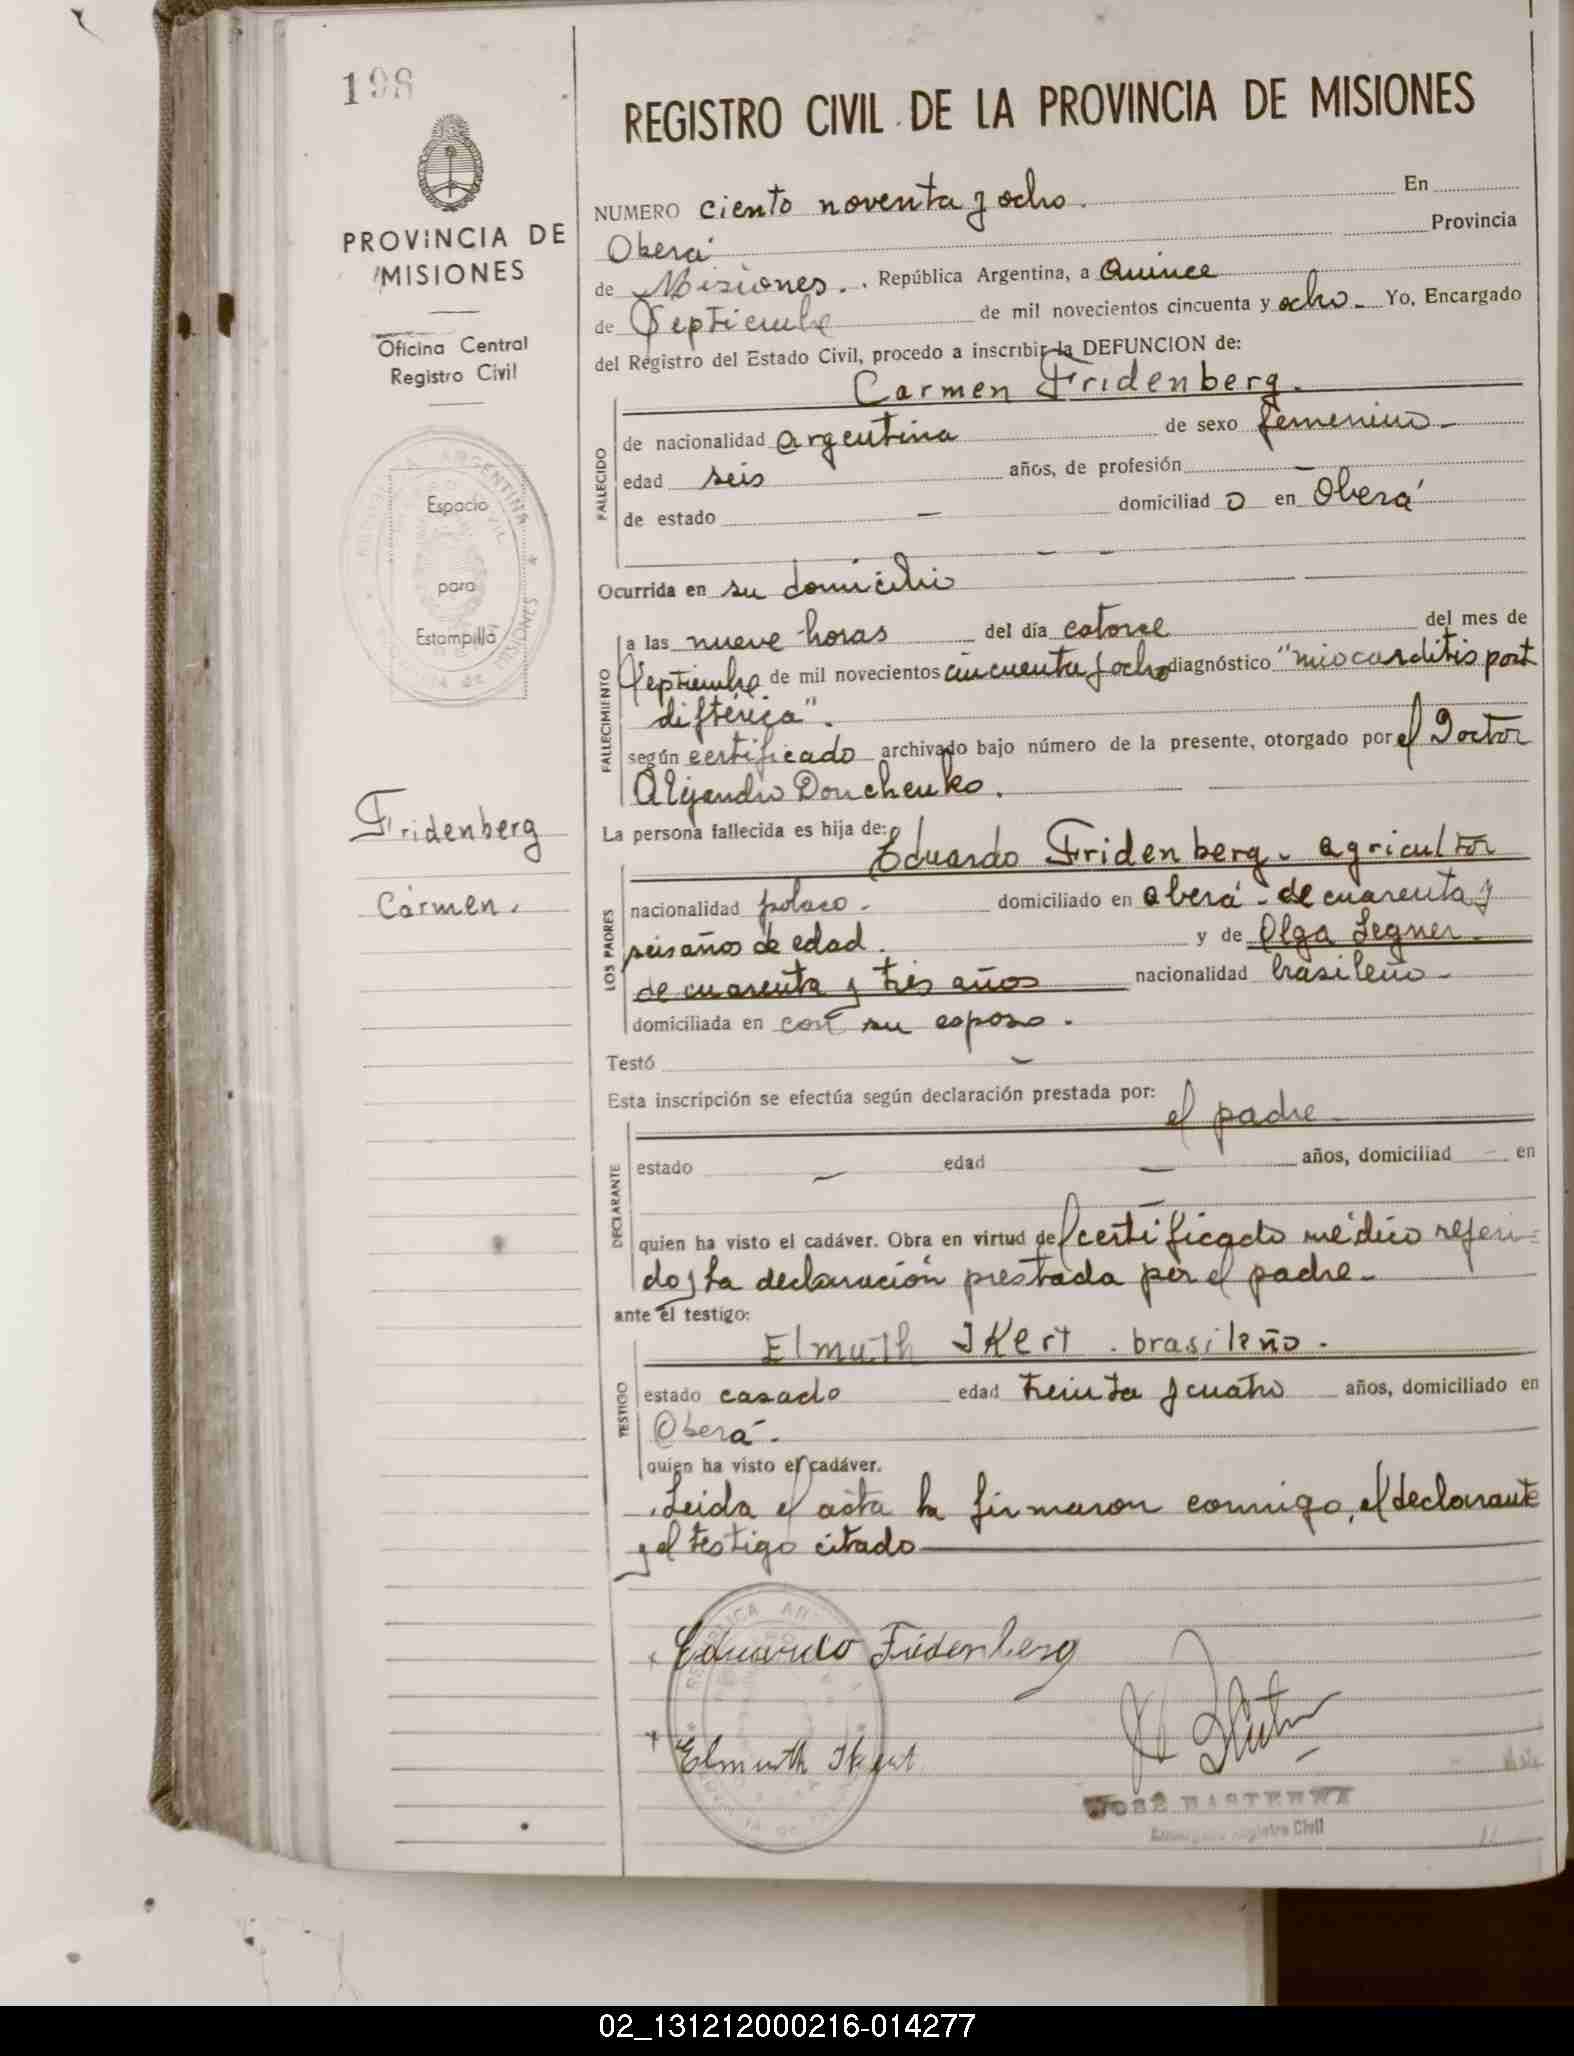 198
PROVINCIA DE
MISIONES
Oficina Central
Registro Civil
Espacio
para
Estampilla
Fridenberg
Carmen.
REGISTRO CIVIL DE LA PROVINCIA DE MISIONES
NUMERO ciento noventa y ocho. En
Oberá Provincia
de Misiones. , República Argentina, a Quince
de Septiembre de mil novecientos cincuenta y ocho. Yo, Encargado
del Registro del Estado Civil, procedo a inscribir la DEFUNCION de:
Carmen Fridenberg.
FALLECIDO
de nacionalidad argentina de sexo femenino
edad seis años, de profesión
de estado — domiciliad o en Oberá
Ocurrida en su domicilio
FALLECIMIENTO
a las nueve horas del día catorce del mes de
Septiembre de mil novecientos cincuenta y ocho diagnóstico "miocarditis post
diftérica".
según certificado archivado bajo número de la presente, otorgado por el Doctor
Alejandro Donchenko.
La persona fallecida es hija de:
Eduardo Fridenberg. agricultor
LOS PADRES
nacionalidad polaco. domiciliado en Oberá - de cuarenta y
seis años de edad. y de Olga Legner.
de cuarenta y tres años nacionalidad brasileño
domiciliada en con su esposo.
Testó —
Esta inscripción se efectúa según declaración prestada por:
el padre
DECLARANTE
estado — edad — años, domiciliad — en
quien ha visto el cadáver. Obra en virtud del certificado médico referi=
do y la declaración prestada por el padre.
ante el testigo:
Elmuth Ikert . brasileño.
TESTIGO
estado casado edad treinta y cuatro años, domiciliado en
Oberá.
quien ha visto el cadáver.
Leida el acta la firmaron conmigo, el declarante
y el testigo citado
Eduardo Fridenberg
Elmuth Ikert
JOSÉ BASTERRA
Encargado Registro Civil
02_131212000216-014277